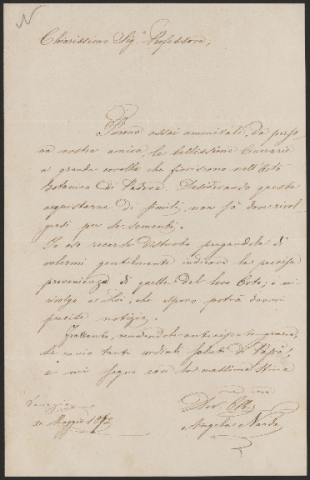 N
Chiarissimo Sig.r Professore,
Furono assai ammirati, da perso
na nostra amica, le bellissime Cinerarie
a grande corolla che fioriscono nell'Orto
Botanico di Padova. Desiderando questa
acquistarne di simili, non sa dove rivol
gersi per le sementi.
Io oso recarle disturbo pregandola di
volermi gentilmente indicare la precisa
provenienza di quelle del loro Orto, e mi
rivolgo a Lei, che spero potrà darmi
precise notizie.
Frattanto, rendendole anticipate grazie,
Le invio tanti cordiali saluti di Papà,
e mi segno con massima stima
Venezia
20 Maggio 18
Dev. Obb.
Angelo Nardo